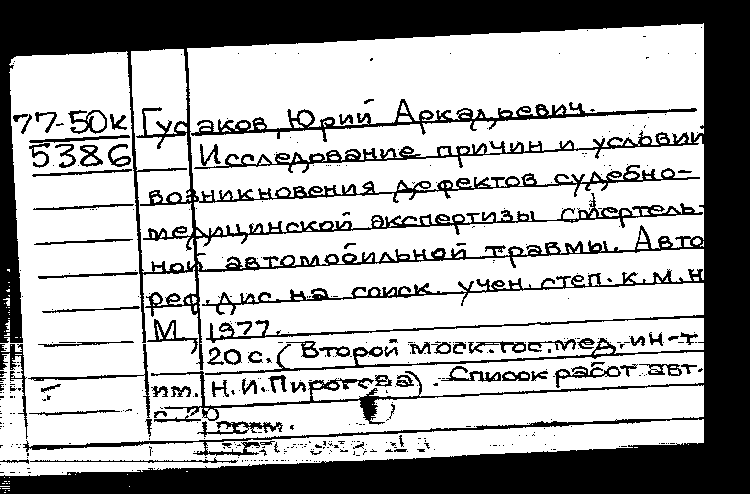 77-50к Гусаков, Юрий Аркадьевич.
5386 Исследование причин и условий
возникновения дефектов судебно-
медицинской экспертизы смертель-
ной автомобильной травмы. Авто
реф. дис. на соиск. учен. степ. к.м.н
М, 1977.
20 с. (Второй моск. гос. мед. ин-т
им. Н.И.Пирогова) Список работ авт.
с. 20